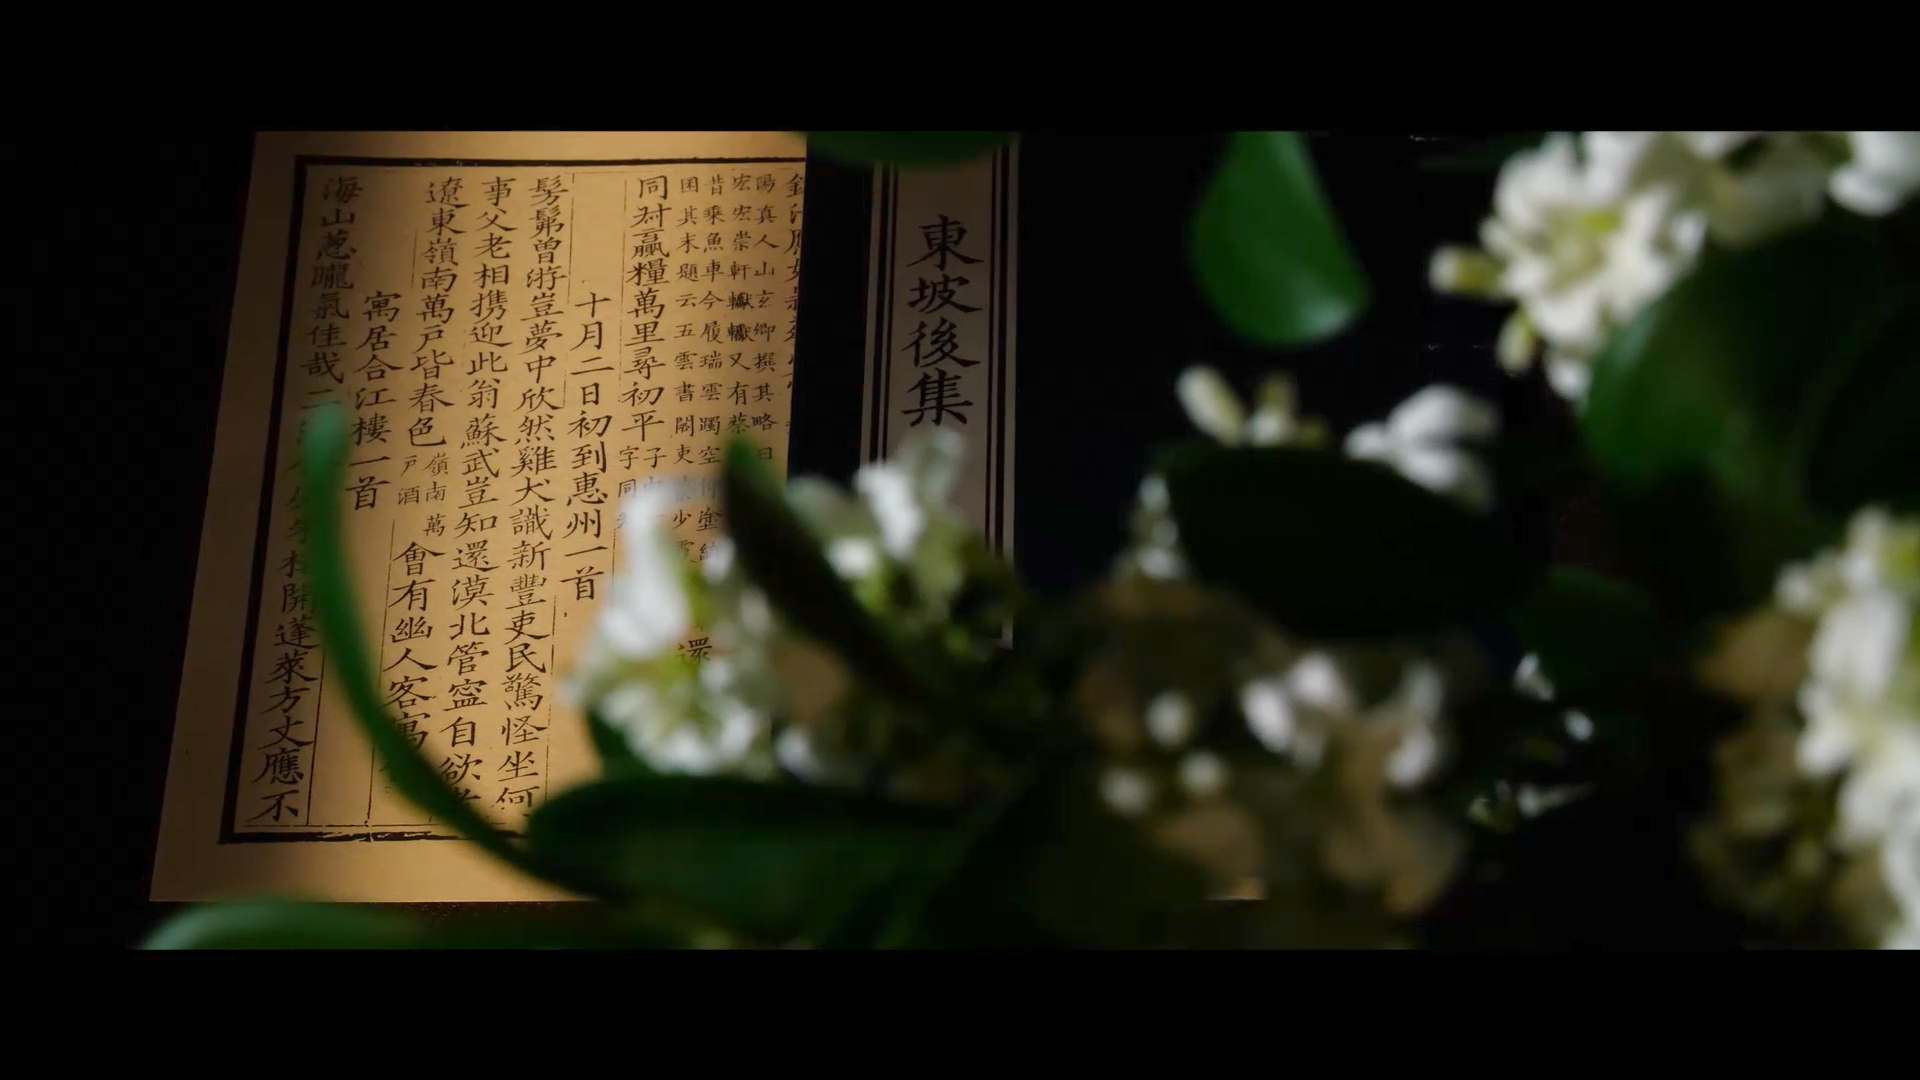 東坡後集
陽真人山玄卿撰其略曰
宏宏崇軒轞轞又有蔡
昔乘魚車今履瑞雲躅空仰塗
困其末題云五雲書閣吏 少
還
同尌贏糧萬里尋初平子
字同
十月二日初到惠州一首
髣髴曾游豈夢中欣然雞犬識新豐吏民驚怪坐何
事父老相携迎此翁蘇武豈知還漠北管寍自欲老
遼東嶺南萬戶皆春色嶺南萬戶酒會有幽人客寓
寓居合江樓一首
海山蔥曨氣佳哉二 開蓬萊方丈應不